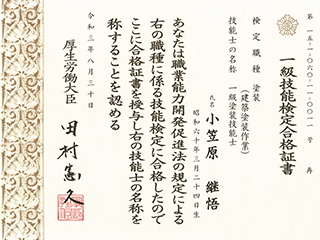 第一五-一-〇六〇-一一-〇〇一一号
一級技能検定合格証書
検定職種 塗装
(建築塗装作業)
技能士の名称 一級塗装技能士
氏名 小笠原 継悟
昭和六十年三月二十四日生
あなたは職業能力開発促進法の規定による
右の職種に係る技能検定に合格したので
ここに合格証書を授与し右の技能士の名称を
称することを認める
令和三年八月三十日
厚生労働大臣 田村憲久